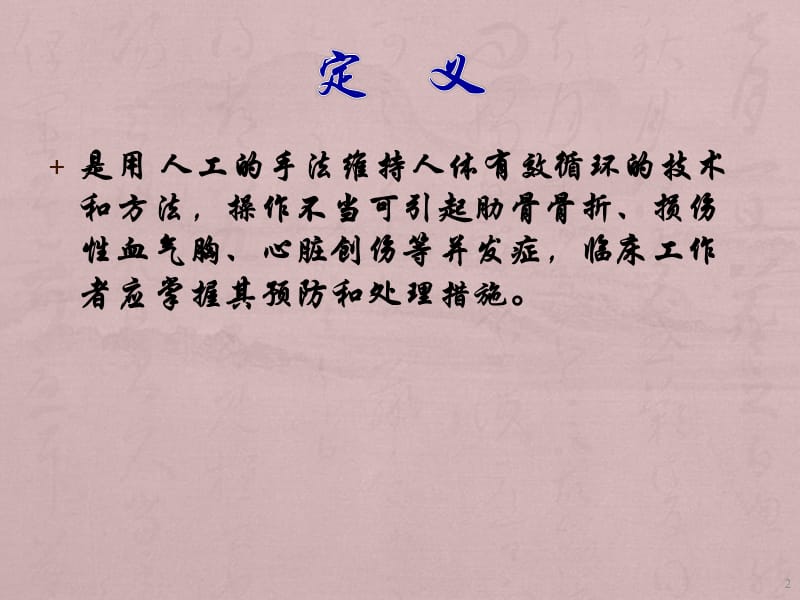 定 义
+ 是用 人工的手法维持人体有效循环的技术
和方法，操作不当可引起肋骨骨折、损伤
性血气胸、心脏创伤等并发症，临床工作
者应掌握其预防和处理措施。
2